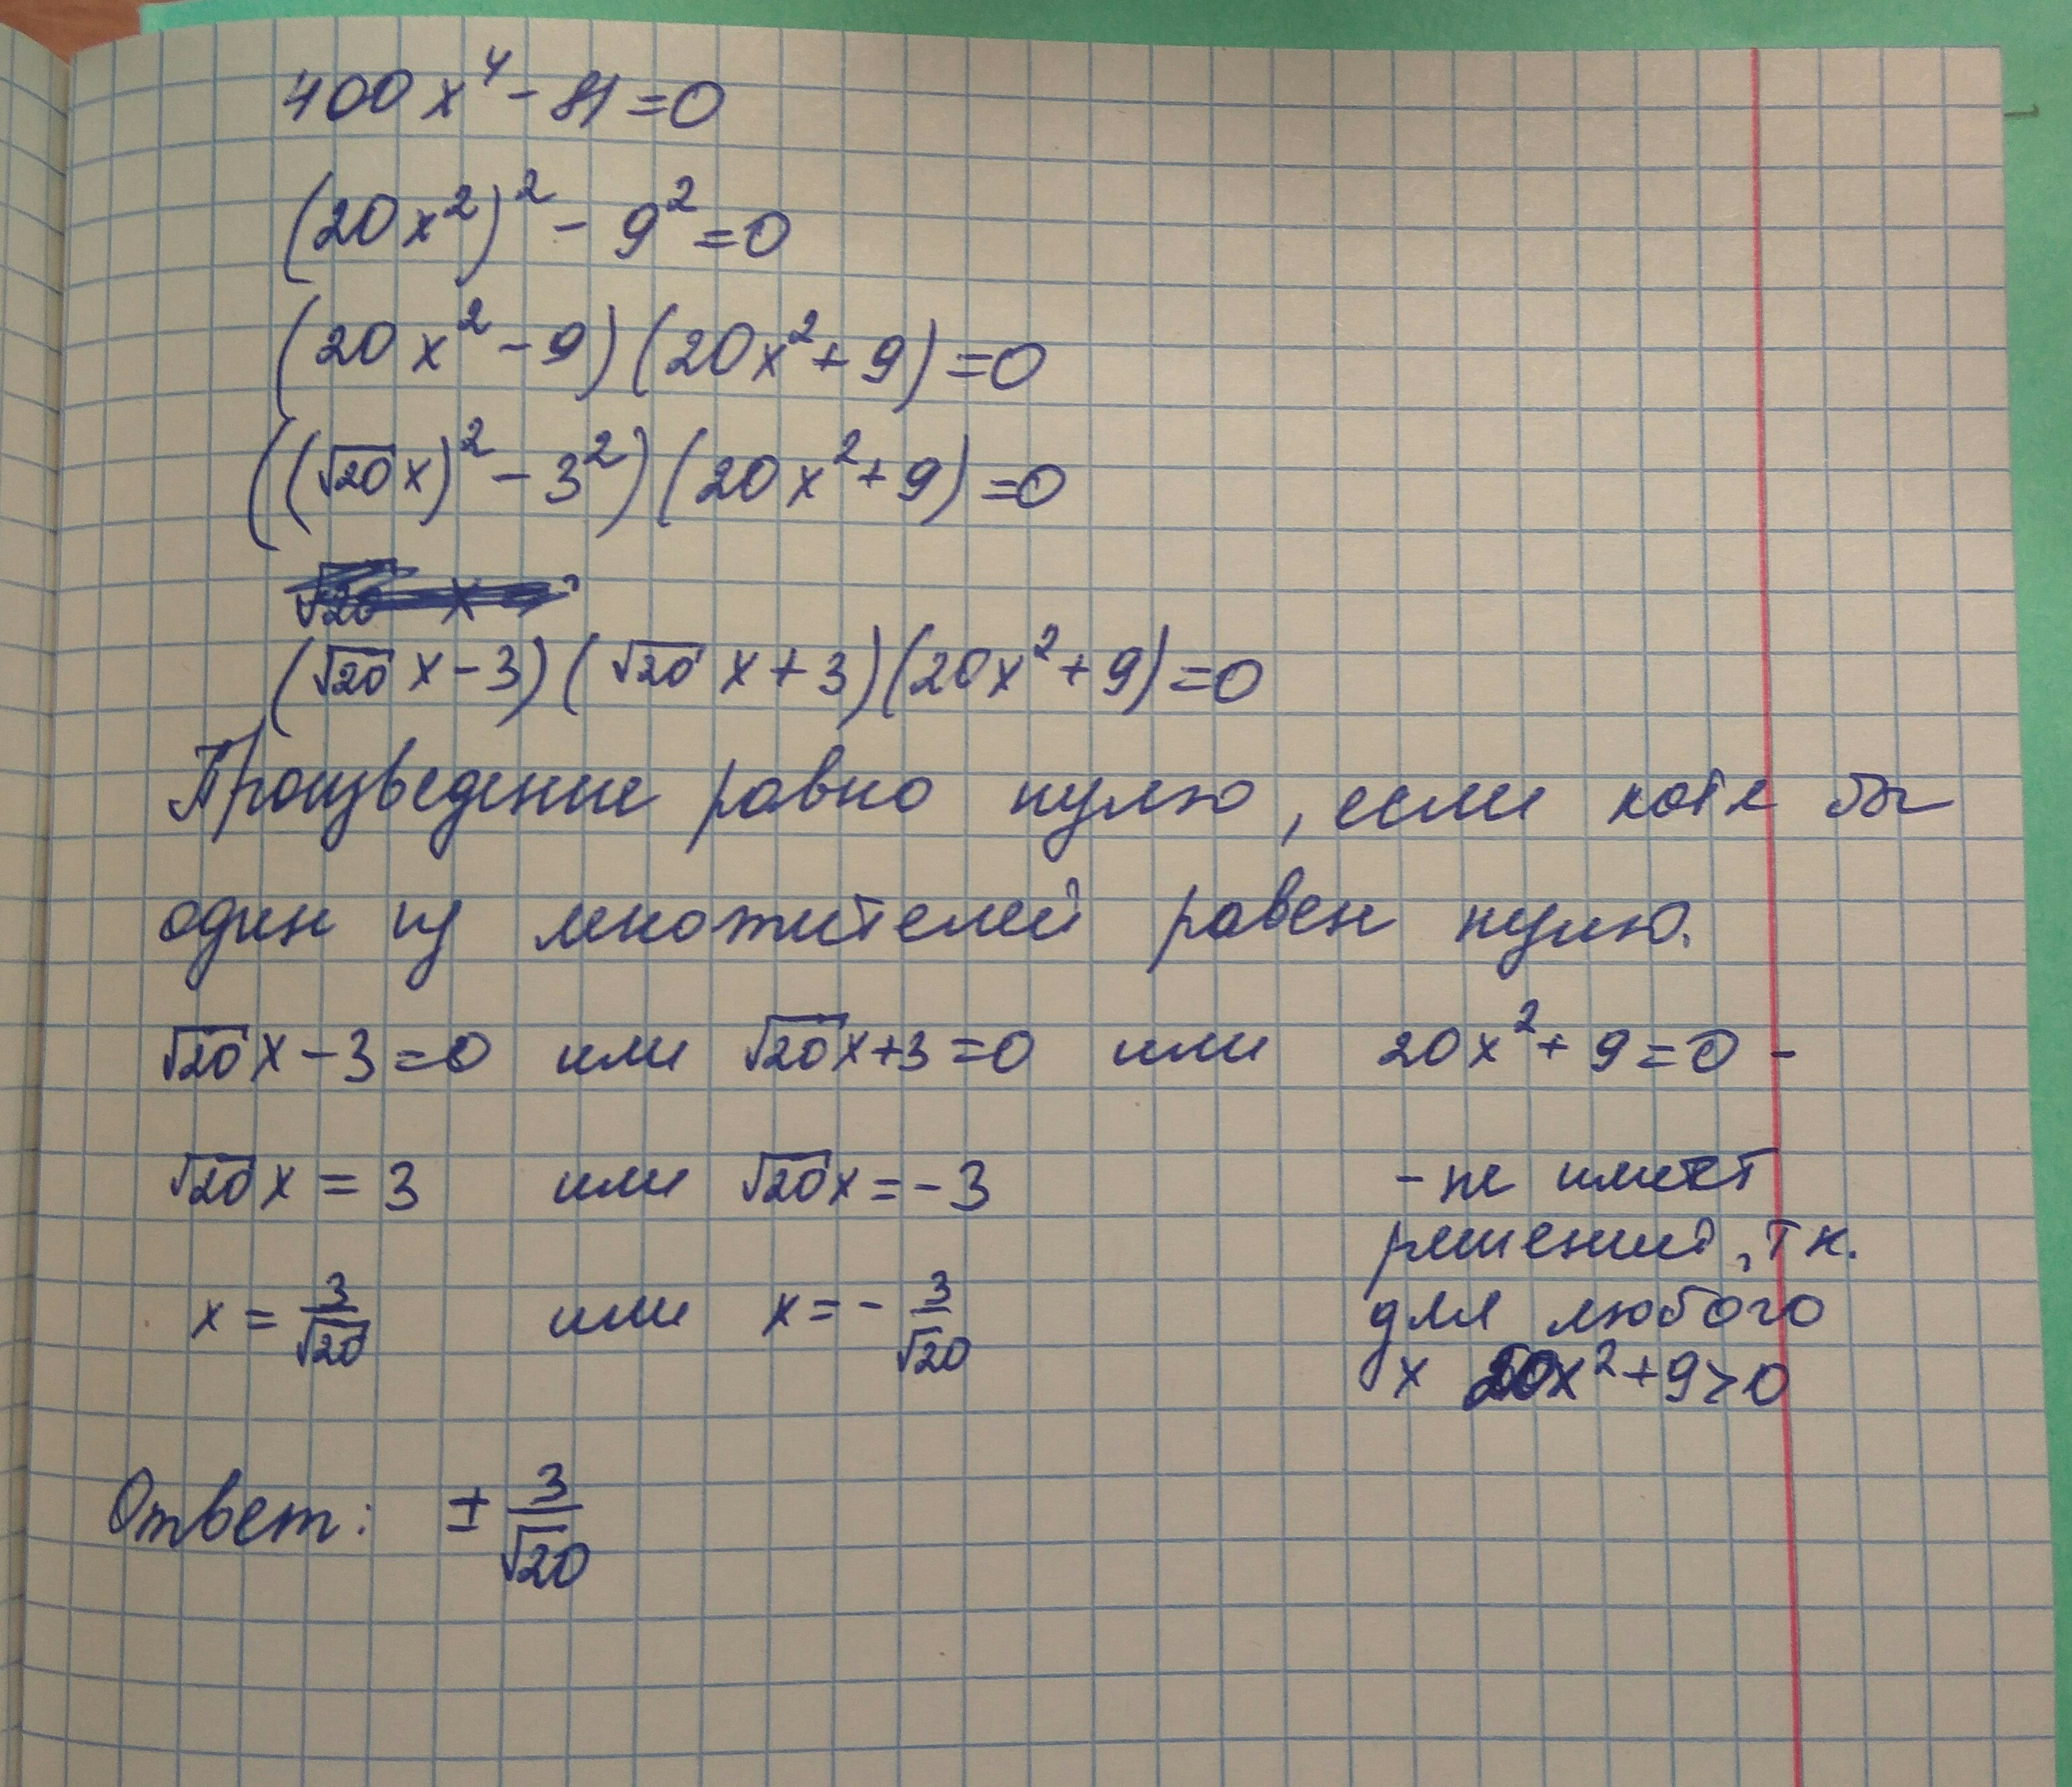 400x⁴ - 81 = 0
(20x²)² - 9² = 0
(20x² - 9)(20x² + 9) = 0
((√20x)² - 3²)(20x² + 9) = 0
(√20 x - 3)(√20 x + 3)(20x² + 9) = 0
Произведение равно нулю, если хотя бы
один из множителей равен нулю.
√20x - 3 = 0 или √20x + 3 = 0 или 20x² + 9 = 0 -
√20x = 3 или √20x = -3 - не имеет
решений, т к.
x = 3/√20 или x = - 3/√20 для любого
x 20x² + 9 > 0
Ответ: ± 3/√20